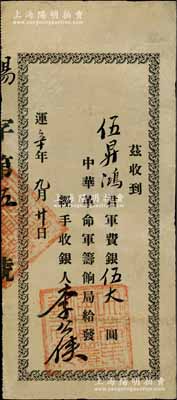 上海阳明拍卖
茲收到
伍昇鴻君軍費銀伍大圓
中華革命軍籌餉局給發
經手收銀人李公俠
運 年 九月廿日
字第五 號